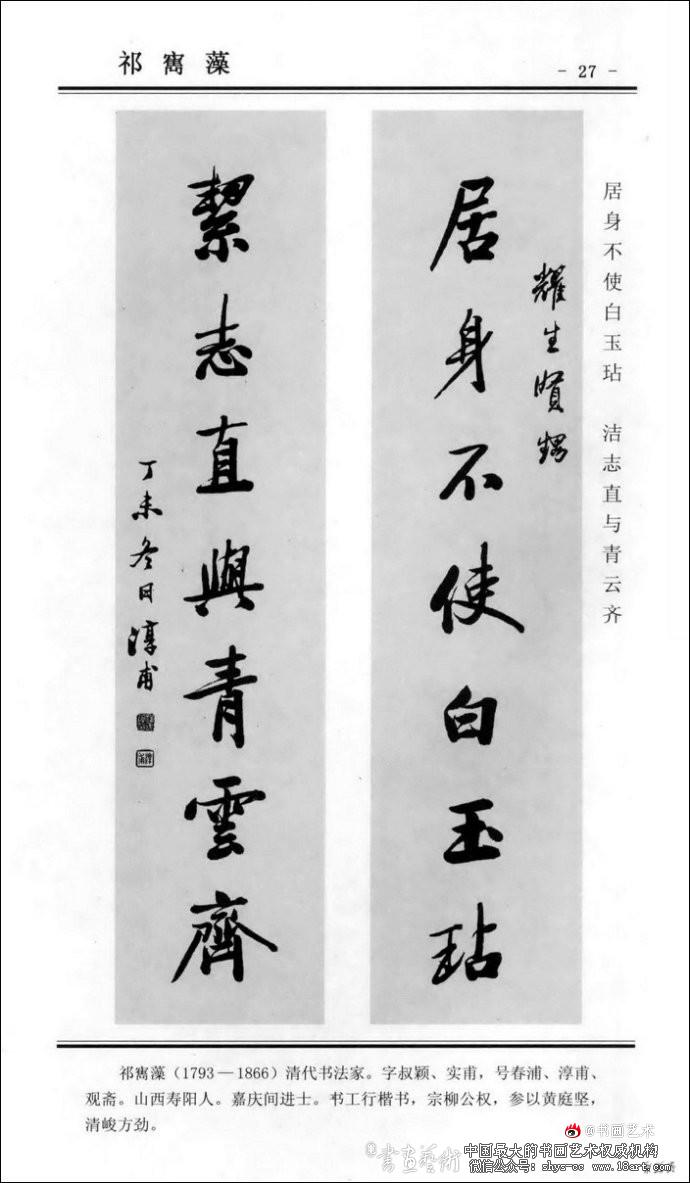 祁寯藻
- 27 -
居身不使白玉玷 洁志直与青云齐
耀生賢甥
居身不使白玉玷
絜志直與青雲齊
丁未冬日淳甫
祁寯藻（1793—1866）清代书法家。字叔颖、实甫，号春浦、淳甫、
观斋。山西寿阳人。嘉庆间进士。书工行楷书，宗柳公权，参以黄庭坚，
清峻方劲。
@书画艺术
©書画藝術
中国最大的书画艺术权威机构
微信公众号：shys-cc www.18art.com